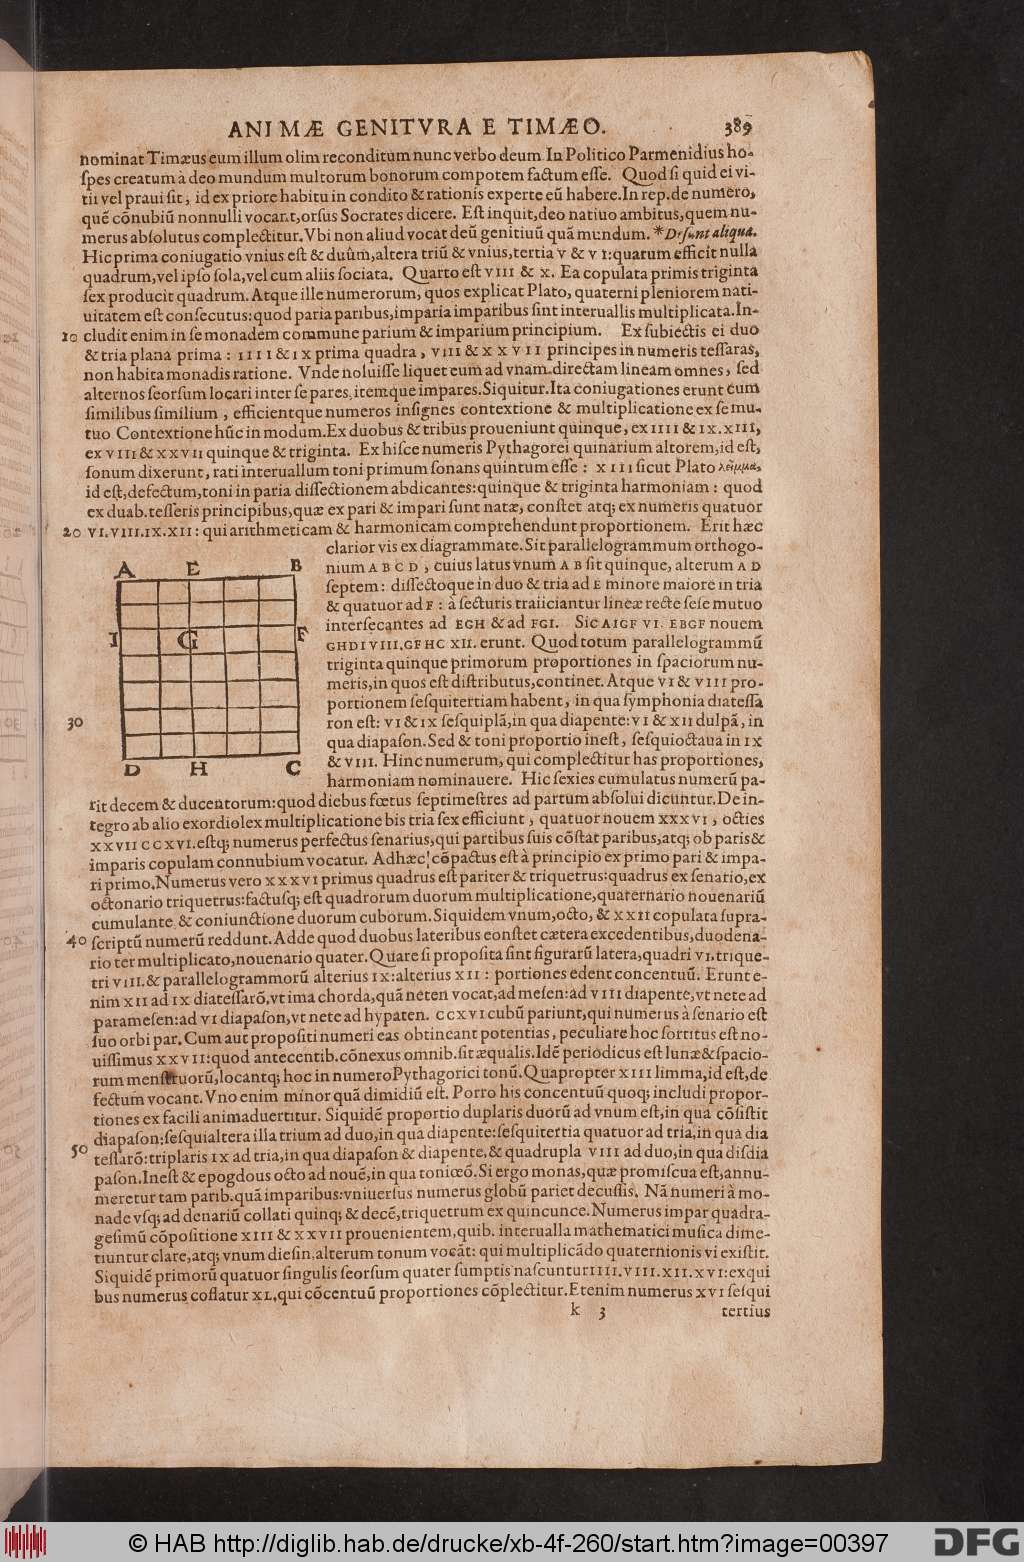 ANIMÆ GENITVRA E TIMÆO. 389
nominat Timæus eum illum olim reconditum nunc verbo deum. In Politico Parmenidius ho-
ſpes creatum à deo mundum multorum bonorum compotem factum eſſe. Quod ſi quid ei vi-
tii vel praui ſit, id ex priore habitu in condito & rationis experte eũ habere. In rep. de numero,
quẽ cõnubiũ nonnulli vocant, orſus Socrates dicere. Eſt inquit, deo natiuo ambitus, quem nu-
merus abſolutus complectitur. Vbi non aliud vocat deũ genitiuũ quã mundum. *Deſunt aliqua.
Hic prima coniugatio vnius eſt & duûm, altera triũ & vnius, tertia V & VI: quarum efficit nulla
quadrum, vel ipſo ſola, vel cum aliis ſociata. Quarto eſt VIII & X. Ea copulata primis triginta
ſex producit quadrum. Atque ille numerorum, quos explicat Plato, quaterni pleniorem nati-
uitatem eſt conſecutus: quod paria paribus, imparia imparibus ſint interuallis multiplicata. In-
10 cludit enim in ſe monadem commune parium & imparium principium. Ex ſubiectis ei duo
& tria plana prima: IIII & IX prima quadra, VIII & XXVII principes in numeris teſſaras,
non habita monadis ratione. Vnde noluiſſe liquet eum ad vnam directam lineam omnes, ſed
alternos ſeorſum locari inter ſe pares, itemque impares. Siquitur. Ita coniugationes erunt cum
ſimilibus ſimilium, efficientque numeros inſignes contextione & multiplicatione ex ſe mu-
tuo Contextione hũc in modum. Ex duobus & tribus proueniunt quinque, ex IIII & IX. XIII,
ex VIII & XXVII quinque & triginta. Ex hiſce numeris Pythagorei quinarium altorem, id eſt,
ſonum dixerunt, rati interuallum toni primum ſonans quintum eſſe: XIII ſicut Plato λεῖμμα,
id eſt, defectum, toni in paria diſſectionem abdicantes: quinque & triginta harmoniam: quod
ex duab. teſſeris principibus, quæ ex pari & impari ſunt natæ, conſtet atq; ex numeris quatuor
20 VI. VIII. IX. XII: qui arithmeticam & harmonicam comprehendunt proportionem. Erit hæc
clarior vis ex diagrammate. Sit parallelogrammum orthogo-
nium ABCD, cuius latus vnum AB ſit quinque, alterum AD
ſeptem: diſſectoque in duo & tria ad E minore maiore in tria
& quatuor ad F: à ſecturis traiiciantur lineæ recte ſeſe mutuo
interſecantes ad EGH & ad FGI. Sic AIGF VI. EBGF nouem
GHDI VIII. GFHC XII. erunt. Quod totum parallelogrammũ
triginta quinque primorum proportiones in ſpaciorum nu-
meris, in quos eſt diſtributus, continet. Atque VI & VIII pro-
portionem ſeſquitertiam habent, in qua ſymphonia diateſſa
30 ron eſt: VI & IX ſeſquiplã, in qua diapente: VI & XII dulpã, in
qua diapaſon. Sed & toni proportio ineſt, ſeſquioctaua in IX
& VIII. Hinc numerum, qui complectitur has proportiones,
harmoniam nominauere. Hic ſexies cumulatus numerũ pa-
A E B
I G F
D H C
rit decem & ducentorum: quod diebus fœtus ſeptimeſtres ad partum abſolui dicuntur. De in-
tegro ab alio exordio lex multiplicatione bis tria ſex efficiunt, quatuor nouem XXXVI, octies
XXVII CCXVI. eſtq; numerus perfectus ſenarius, qui partibus ſuis cõſtat paribus, atq; ob paris &
imparis copulam connubium vocatur. Adhæc cõpactus eſt à principio ex primo pari & impa-
ri primo. Numerus vero XXXVI primus quadrus eſt pariter & triquetrus: quadrus ex ſenario, ex
octonario triquetrus: factuſq; eſt quadrorum duorum multiplicatione, quaternario nouenariũ
cumulante & coniunctione duorum cuborum. Siquidem vnum, octo, & XXII copulata ſupra-
40 ſcriptũ numerũ reddunt. Adde quod duobus lateribus conſtet cætera excedentibus, duodena-
rio ter multiplicato, nouenario quater. Quare ſi propoſita ſint figurarũ latera, quadri VI. trique-
tri VIII. & parallelogrammorũ alterius IX: alterius XII: portiones edent concentuũ. Erunt e-
nim XII ad IX diateſſarõ, vt ima chorda, quã neten vocat, ad meſen: ad VIII diapente, vt nete ad
parameſen: ad VI diapaſon, vt nete ad hypaten. CCXVI cubũ pariunt, qui numerus à ſenario eſt
ſuo orbi par. Cum aut propoſiti numeri eas obtineant potentias, peculiare hoc ſortitus eſt no-
uiſſimus XXVII: quod antecentib. cõnexus omnib. ſit æqualis. Idẽ periodicus eſt lunæ & ſpacio-
rum menſtruorũ, locantq; hoc in numero Pythagorici tonũ. Quapropter XIII limma, id eſt, de
fectum vocant. Vno enim minor quã dimidiũ eſt. Porro his concentuũ quoq; includi propor-
tiones ex facili animaduertitur. Siquidẽ proportio duplaris duorũ ad vnum eſt, in qua cõſiſtit
diapaſon: ſeſquialtera illa trium ad duo, in qua diapente: ſeſquitertia quatuor ad tria, in qua dia
50 teſſarõ: triplaris IX ad tria, in qua diapaſon & diapente, & quadrupla VIII ad duo, in qua diſdia
paſon. Ineſt & epogdous octo ad nouẽ, in qua tonicẽõ. Si ergo monas, quæ promiſcua eſt, annu-
meretur tam parib. quã imparibus: vniuerſus numerus globũ pariet decuſſis. Nã numeri à mo-
nade vſq; ad denariũ collati quinq; & decẽ, triquetrum ex quincunce. Numerus impar quadra-
geſimũ cõpoſitione XIII & XXVII prouenientem, quib. interualla mathematici muſica dime-
tiuntur clare, atq; vnum dieſin. alterum tonum vocãt: qui multiplicãdo quaternionis vi exiſtit.
Siquidẽ primorũ quatuor ſingulis ſeorſum quater ſumptis naſcuntur IIII. VIII. XII. XVI: ex qui
bus numerus coflatur XL, qui cõcentuũ proportiones cõplectitur. Etenim numerus XVI ſeſqui
k 3 tertius
© HAB http://diglib.hab.de/drucke/xb-4f-260/start.htm?image=00397 DFG